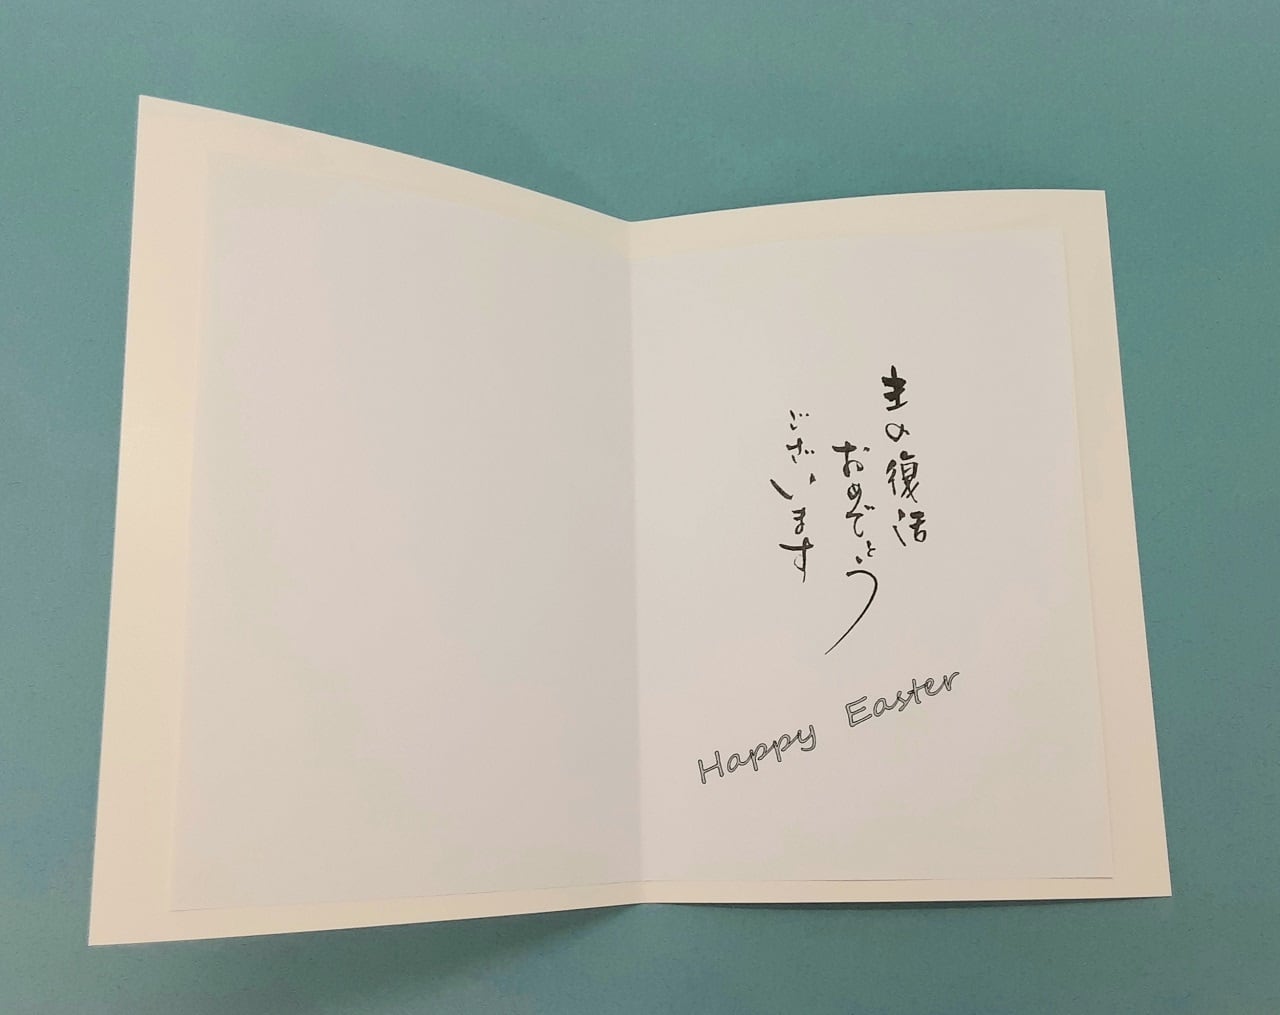 主の復活
おめでとう
ございます
Happy Easter